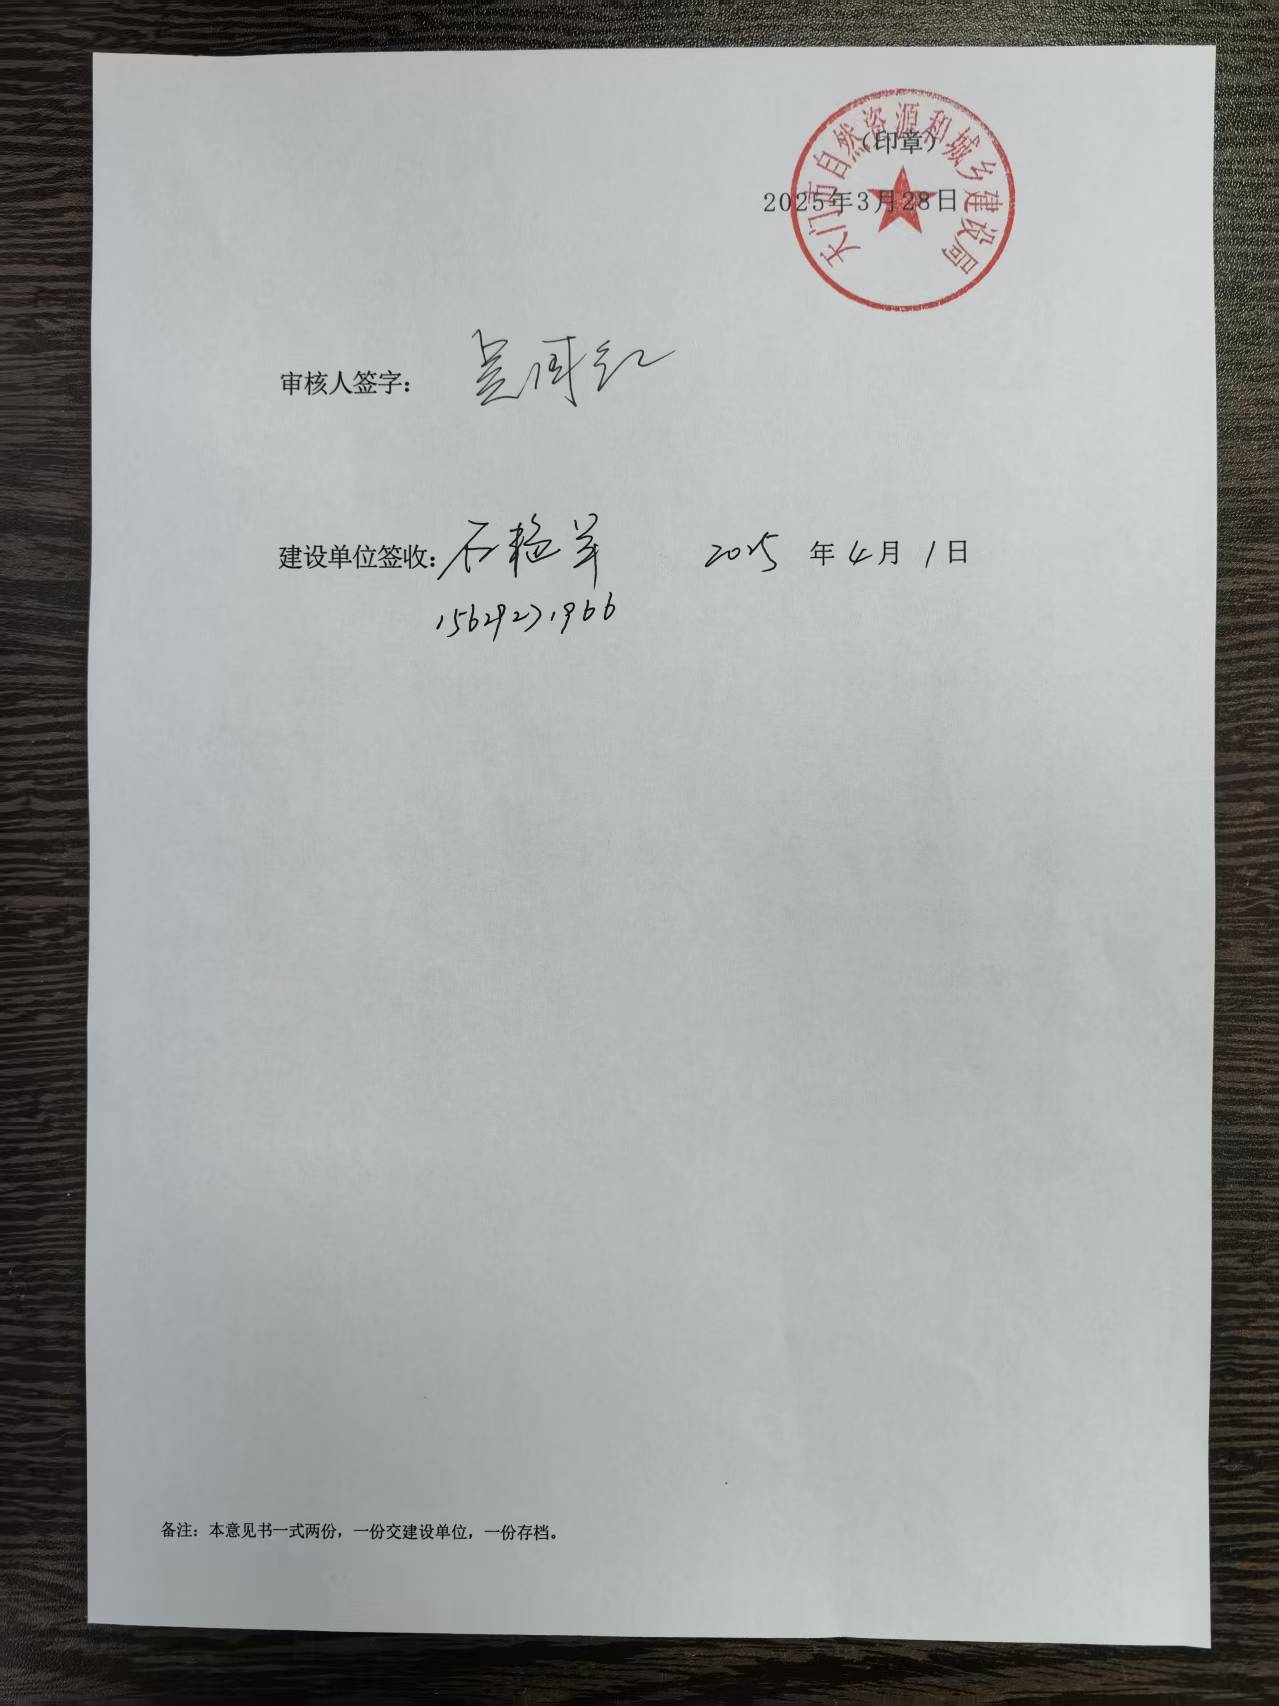 天门市自然资源和城乡建设局
（印章）
2025年3月28日
审核人签字：
建设单位签收：石艳苹 2025 年 4 月 1 日
15629271966
备注：本意见书一式两份，一份交建设单位，一份存档。